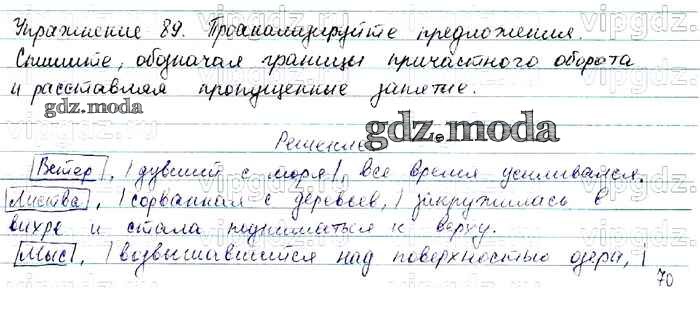 Упражнение 89. Проанализируйте предложения.
Спишите, обозначая границы причастного оборота
и расставляя пропущенные запятые.
gdz.moza
Решение
gdz.moza
Ветер, | дувший с моря |, все время усиливался.
Листва, | сорванная с деревьев, | закружилась в
вихре и стала подниматься к верху.
Мыс, | возвышавшийся над поверхностью озера, |
70